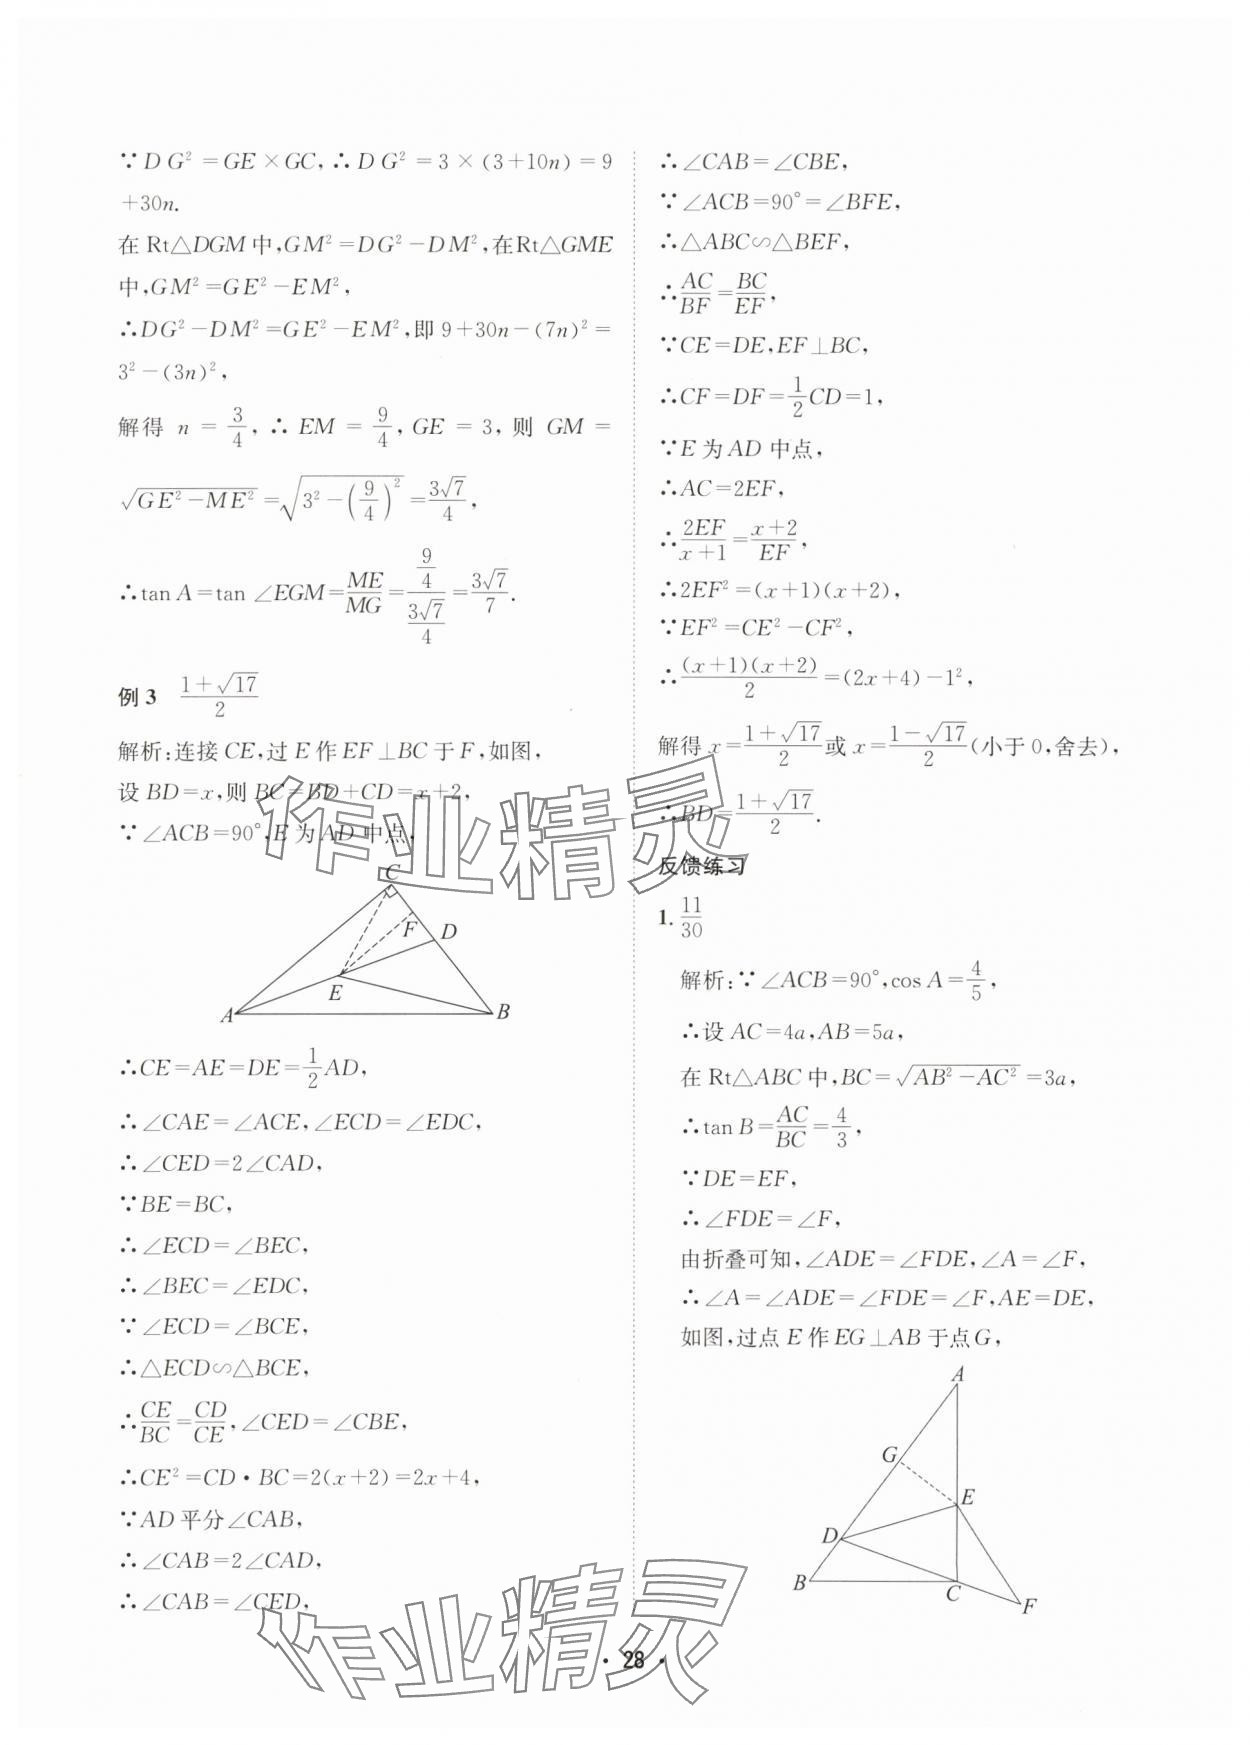 ∵DG²=GE×GC,∴DG²=3×(3+10n)=9
+30n.
在Rt△DGM中,GM²=DG²-DM²,在Rt△GME
中,GM²=GE²-EM²,
∴DG²-DM²=GE²-EM²,即9+30n-(7n)²=
3²-(3n)²,
解得 n=3/4,∴EM=9/4,GE=3,则 GM=
√(GE²-ME²)=√(3²-(9/4)²)=3√7/4,
∴tan A=tan∠EGM=ME/MG=(9/4)/(3√7/4)=3√7/7.
例3 (1+√17)/2
解析:连接CE,过E作EF⊥BC于F,如图,
设BD=x,则BC=BD+CD=x+2,
∵∠ACB=90°,E为AD中点,
C
F
D
E
A
B
∴CE=AE=DE=1/2AD,
∴∠CAE=∠ACE,∠ECD=∠EDC,
∴∠CED=2∠CAD,
∵BE=BC,
∴∠ECD=∠BEC,
∴∠BEC=∠EDC,
∵∠ECD=∠BCE,
∴△ECD∽△BCE,
∴CE/BC=CD/CE,∠CED=∠CBE,
∴CE²=CD·BC=2(x+2)=2x+4,
∵AD平分∠CAB,
∴∠CAB=2∠CAD,
∴∠CAB=∠CED,
∴∠CAB=∠CBE,
∵∠ACB=90°=∠BFE,
∴△ABC∽△BEF,
∴AC/BF=BC/EF,
∵CE=DE,EF⊥BC,
∴CF=DF=1/2CD=1,
∵E为AD中点,
∴AC=2EF,
∴2EF/(x+1)=(x+2)/EF,
∴2EF²=(x+1)(x+2),
∵EF²=CE²-CF²,
∴(x+1)(x+2)/2=(2x+4)-1²,
解得x=(1+√17)/2或x=(1-√17)/2(小于0,舍去),
∴BD=(1+√17)/2.
反馈练习
1. 11/30
解析:∵∠ACB=90°,cos A=4/5,
∴设AC=4a,AB=5a,
在Rt△ABC中,BC=√(AB²-AC²)=3a,
∴tan B=AC/BC=4/3,
∵DE=EF,
∴∠FDE=∠F,
由折叠可知,∠ADE=∠FDE,∠A=∠F,
∴∠A=∠ADE=∠FDE=∠F,AE=DE,
如图,过点E作EG⊥AB于点G,
A
G
E
D
B
C
F
·28·
作业精灵
作业精灵